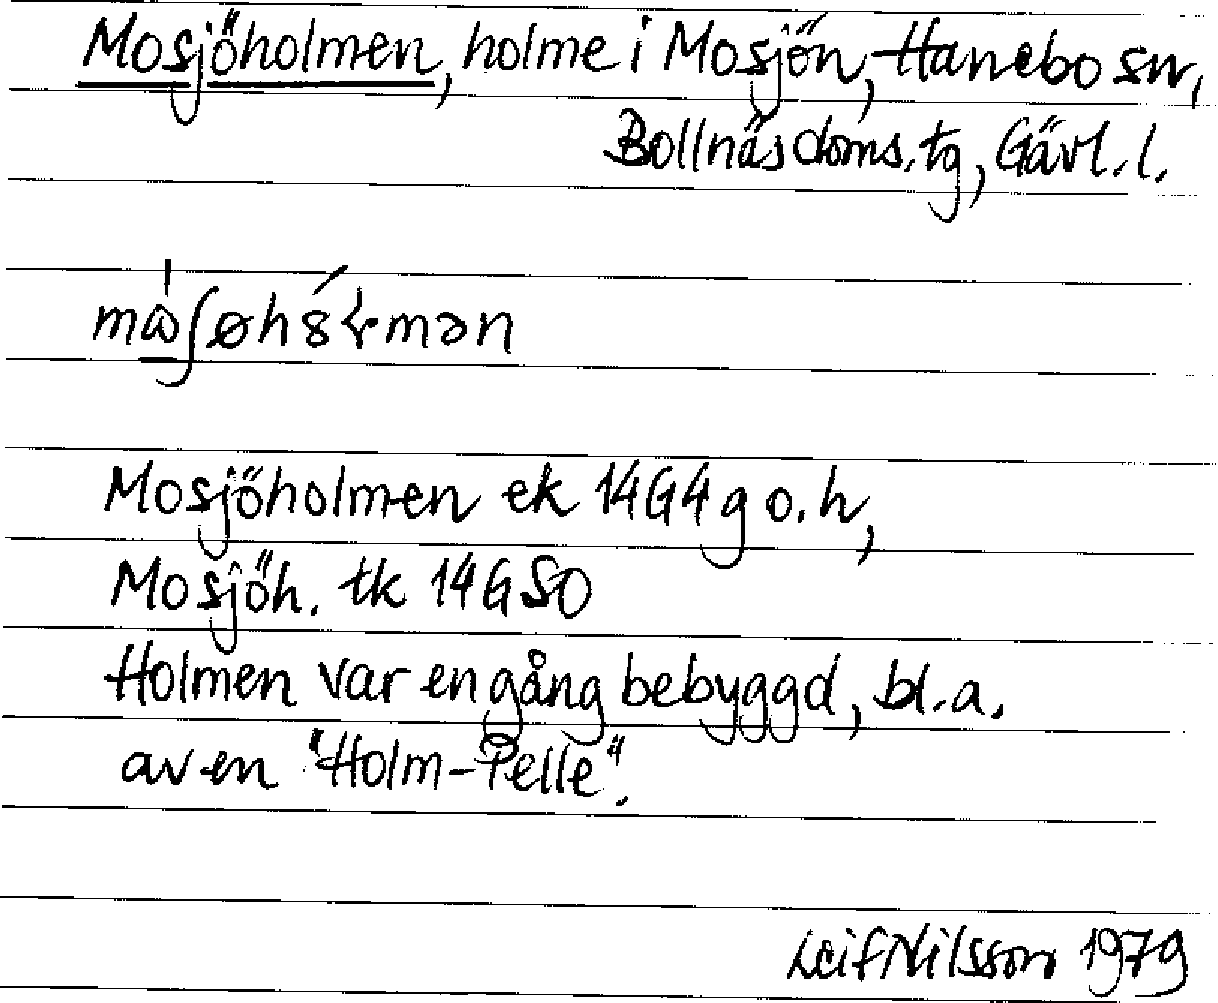 Mosjöholmen, holme i Mosjön, Hanebo sn,
Bollnäs doms. tg, Gävl. l.
Mosjöholmen ek 14G4g o.h,
Mosjöh. tk 14GSO
Holmen var en gång bebyggd, bl.a.
av en "Holm-Pelle".
Leif Nilsson 1979